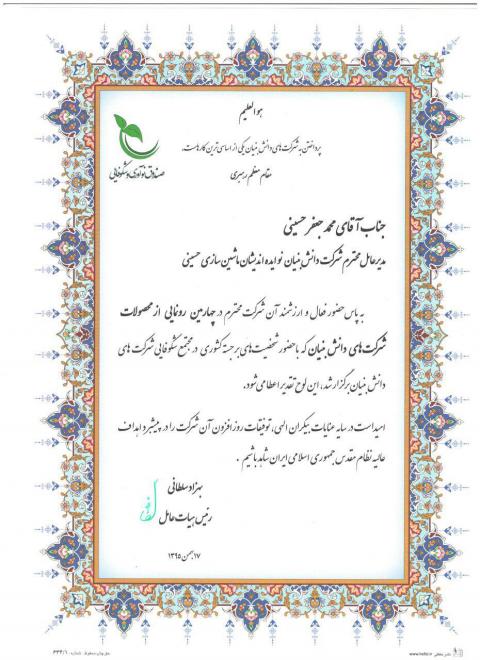 هو العلیم
پرداختن به شرکت های دانش بنیان یکی از اساسی ترین کارهاست.
مقام معظم رهبری
صندوق نوآوری و شکوفایی
جناب آقای محمد جعفر حسینی
مدیرعامل محترم شرکت دانش بنیان نوایده اندیشان ماشین سازی حسینی
به پاس حضور فعال و ارزشمند آن شرکت محترم در چهارمین رونمایی از محصولات
شرکت های دانش بنیان که با حضور شخصیت های برجسته کشوری در مجتمع شکوفایی شرکت های
دانش بنیان برگزار شد، این لوح تقدیر اعطا می شود.
امید است در سایه عنایات بیکران الهی، توفیقات روز افزون آن شرکت را در پیشبرد اهداف
عالیه نظام مقدس جمهوری اسلامی ایران شاهد باشیم .
بهزاد سلطانی
رئیس هیات عامل
۱۷ بهمن ۱۳۹۵